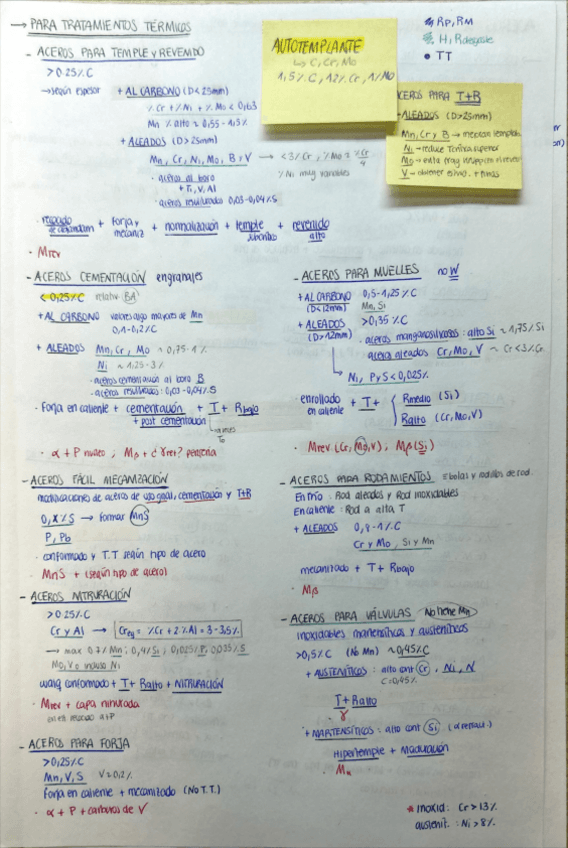 → PARA TRATAMIENTOS TÉRMICOS
- ACEROS PARA TEMPLE y REVENIDO
>0'25%C
→según espesor + AL CARBONO (D<25mm)
%Cr + %Ni + %Mo < 0,63
Mn % alto ≈ 0,55-1,5%
+ ALEADOS (D>25mm)
Mn, Cr, Ni, Mo, B y V → <3%Cr, %Mo ≈ %Cr/4
%Ni muy variables
· aceros al boro
+ Ti, V, Al
· aceros resulfurados 0,03-0,04%S
+ forja y mecaniz + normalización + temple + revenido alto
· Mrev
AUTOTEMPLANTE
↳ C, Cr, Mo
1,5%C, 12%Cr, 1%Mo
Rp, Rm
H, Rdesgaste
• TT
ACEROS PARA T+R
- ALEADOS (D>25mm)
Mn, Cr y B → mejoran templab.
Ni → reduce Tdúctil superior
Mo → evita frag
V → obtener
- ACEROS CEMENTACIÓN engranajes
< 0,25%C relativ BA
+ AL CARBONO valores algo mayores de Mn
0,1-0,2%C
+ ALEADOS Mn, Cr, Mo ≈ 0,75-1%
Ni ≈ 1,25-3%
· aceros cementación al boro B
· aceros resulfurados: 0,03-0,04%S
· Forja en caliente + cementación + T + Rbajo
+ post cementación
· α + P núcleo ; Mβ + γret? periferia
- ACEROS PARA MUELLES no W
+ AL CARBONO 0,5-1,25%C
(D<12mm) Mn, Si
+ ALEADOS >0,35%C
(D>12mm) · aceros manganosilicosos: alto Si ≈ 1,75%Si
· aceros aleados Cr, Mo, V ~ Cr<3%Cr
Ni, P y S < 0,025%
· enrollado en caliente + T + Rmedio (Si)
Ralto (Cr, Mo, V)
· Mrev (Cr, Mo, V), Mβ (Si)
- ACEROS FÁCIL MECANIZACIÓN
modificaciones de aceros de uso gnal, cementación y T+R
0,X%S → formar MnS
P, Pb
· conformado y T.T según tipo de acero
· MnS + (según tipo de acero)
- ACEROS PARA RODAMIENTOS bolas y rodillos de rod.
En frío: Rod aleados y Rod inoxidables
En caliente: Rod a alta T
+ ALEADOS 0,8-1%C
Cr y Mo, Si y Mn
mecanizado + T + Rbajo
· Mβ
- ACEROS NITRURACIÓN
>0'25%C
Cr y Al → Creq = %Cr + 2%Al = 3-3,5%
→ max 0,7%Mn; 0,4%Si; 0,025%P; 0,035%S
Mo, V o incluso Ni
conformado + T + Ralto + NITRURACIÓN
· Mrev + capa nitrurada
- ACEROS PARA VÁLVULAS No tiene Mn
inoxidables martensíticos y austeníticos
>0,5%C (No Mn) ≈0,45%C
+ AUSTENÍTICOS: alto cont Cr, Ni, N
C≈0,45%
T + Ralto
γ
+ MARTENSÍTICOS: alto cont Si
Hipertemple + Maduración
- ACEROS PARA FORJA
>0,25%C
Mn, V, S V≈0,2%
Forja en caliente + mecanizado (No T.T.)
· α + P + carburos de V
* inoxid: Cr>13%
austenit.: Ni>8%